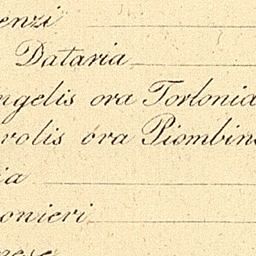 enzi
Dataria
ngelis ora Torlonia
rolis ora Piombino
ia
onieri
nese